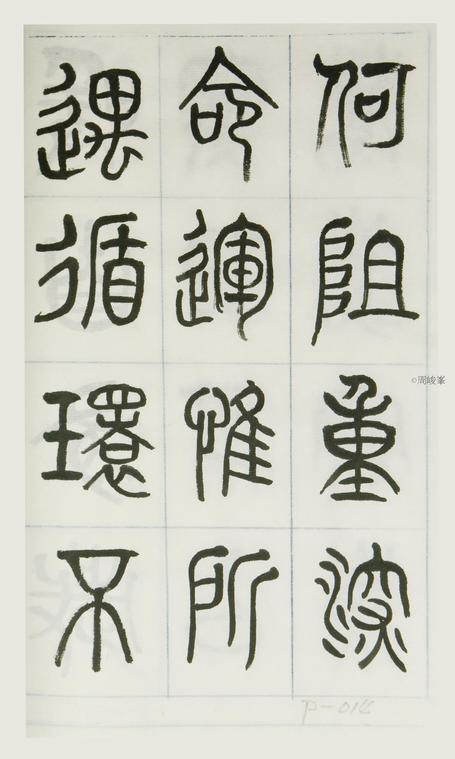 何阻重深
命運惟所
遇循環不
©周峻峯